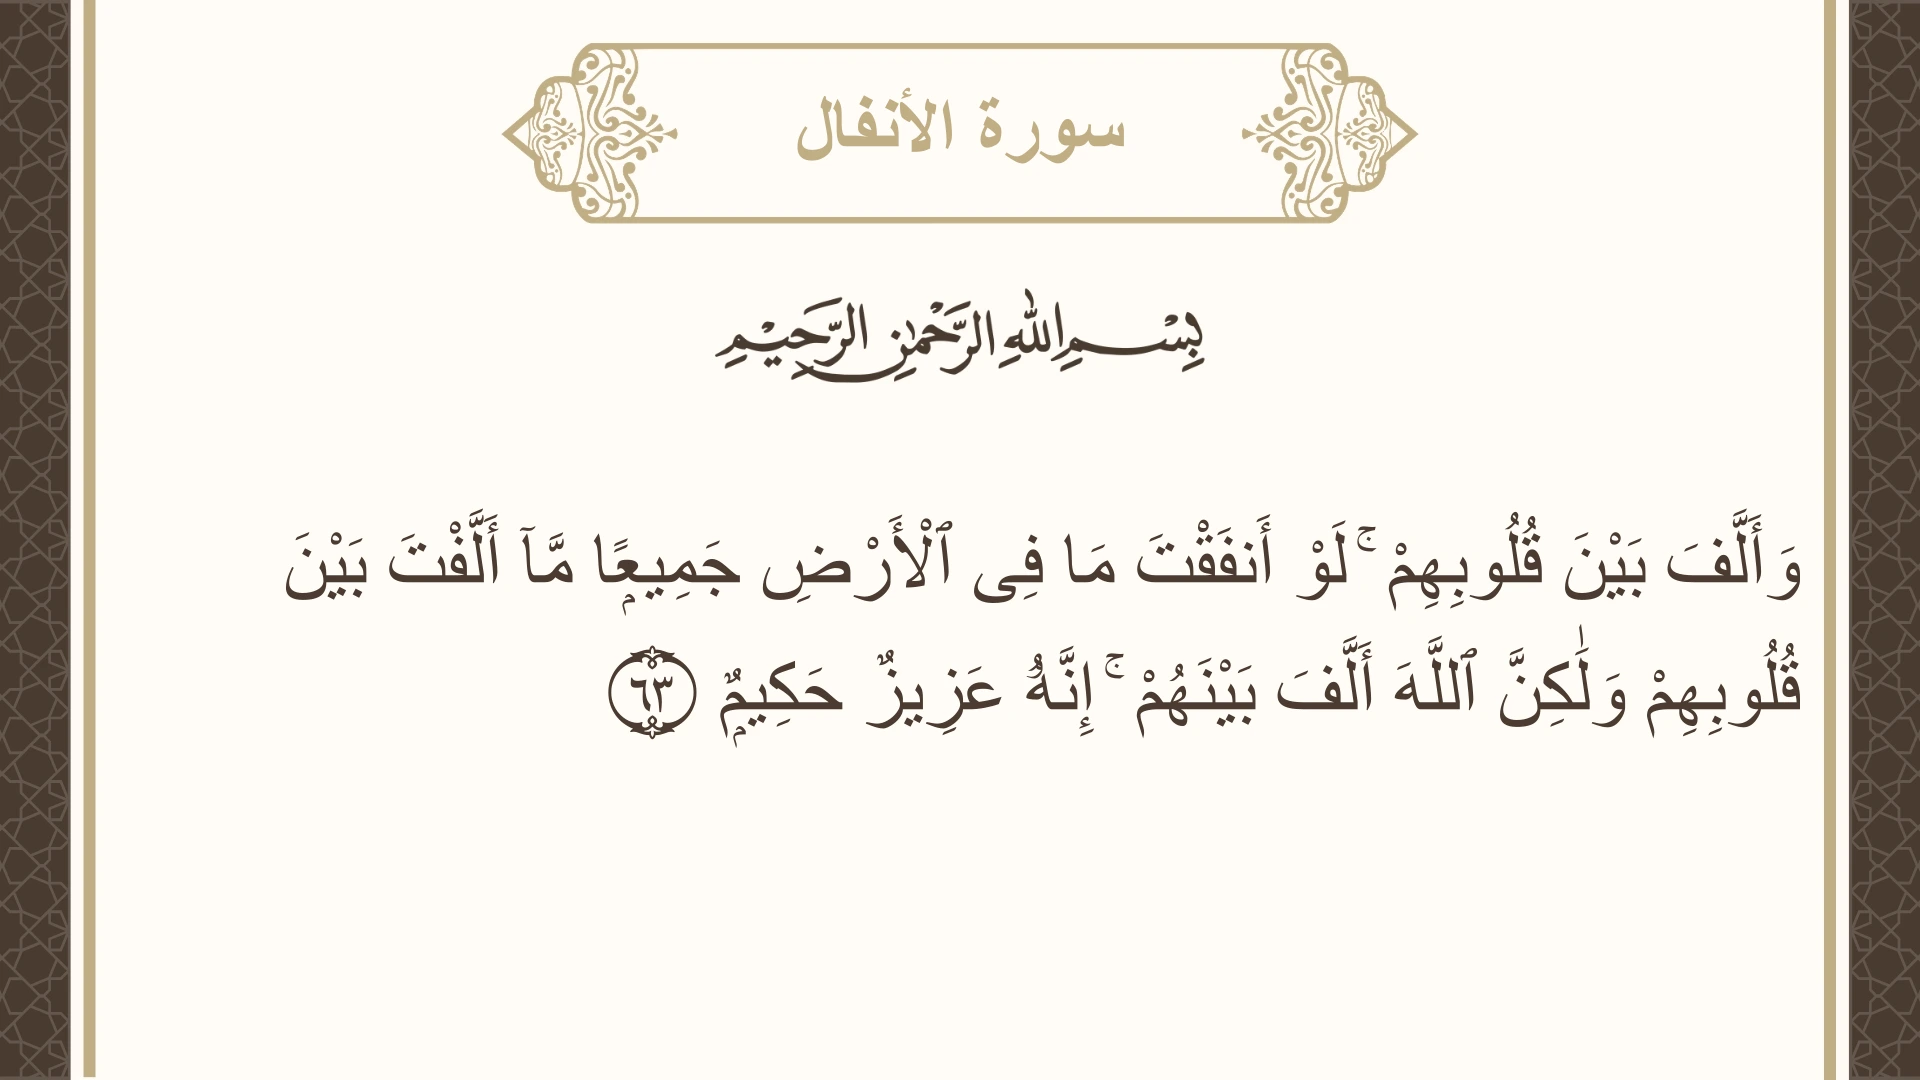 سورة الأنفال
بِسْمِ اللهِ الرَّحْمٰنِ الرَّحِيْمِ
وَأَلَّفَ بَيْنَ قُلُوبِهِمْ ۚ لَوْ أَنفَقْتَ مَا فِى ٱلْأَرْضِ جَمِيعًۭا مَّآ أَلَّفْتَ بَيْنَ
قُلُوبِهِمْ وَلَٰكِنَّ ٱللَّهَ أَلَّفَ بَيْنَهُمْ ۚ إِنَّهُۥ عَزِيزٌ حَكِيمٌۭ ٦٣